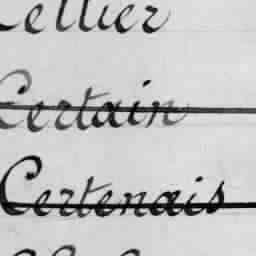 Cellier
Certain
Certenais